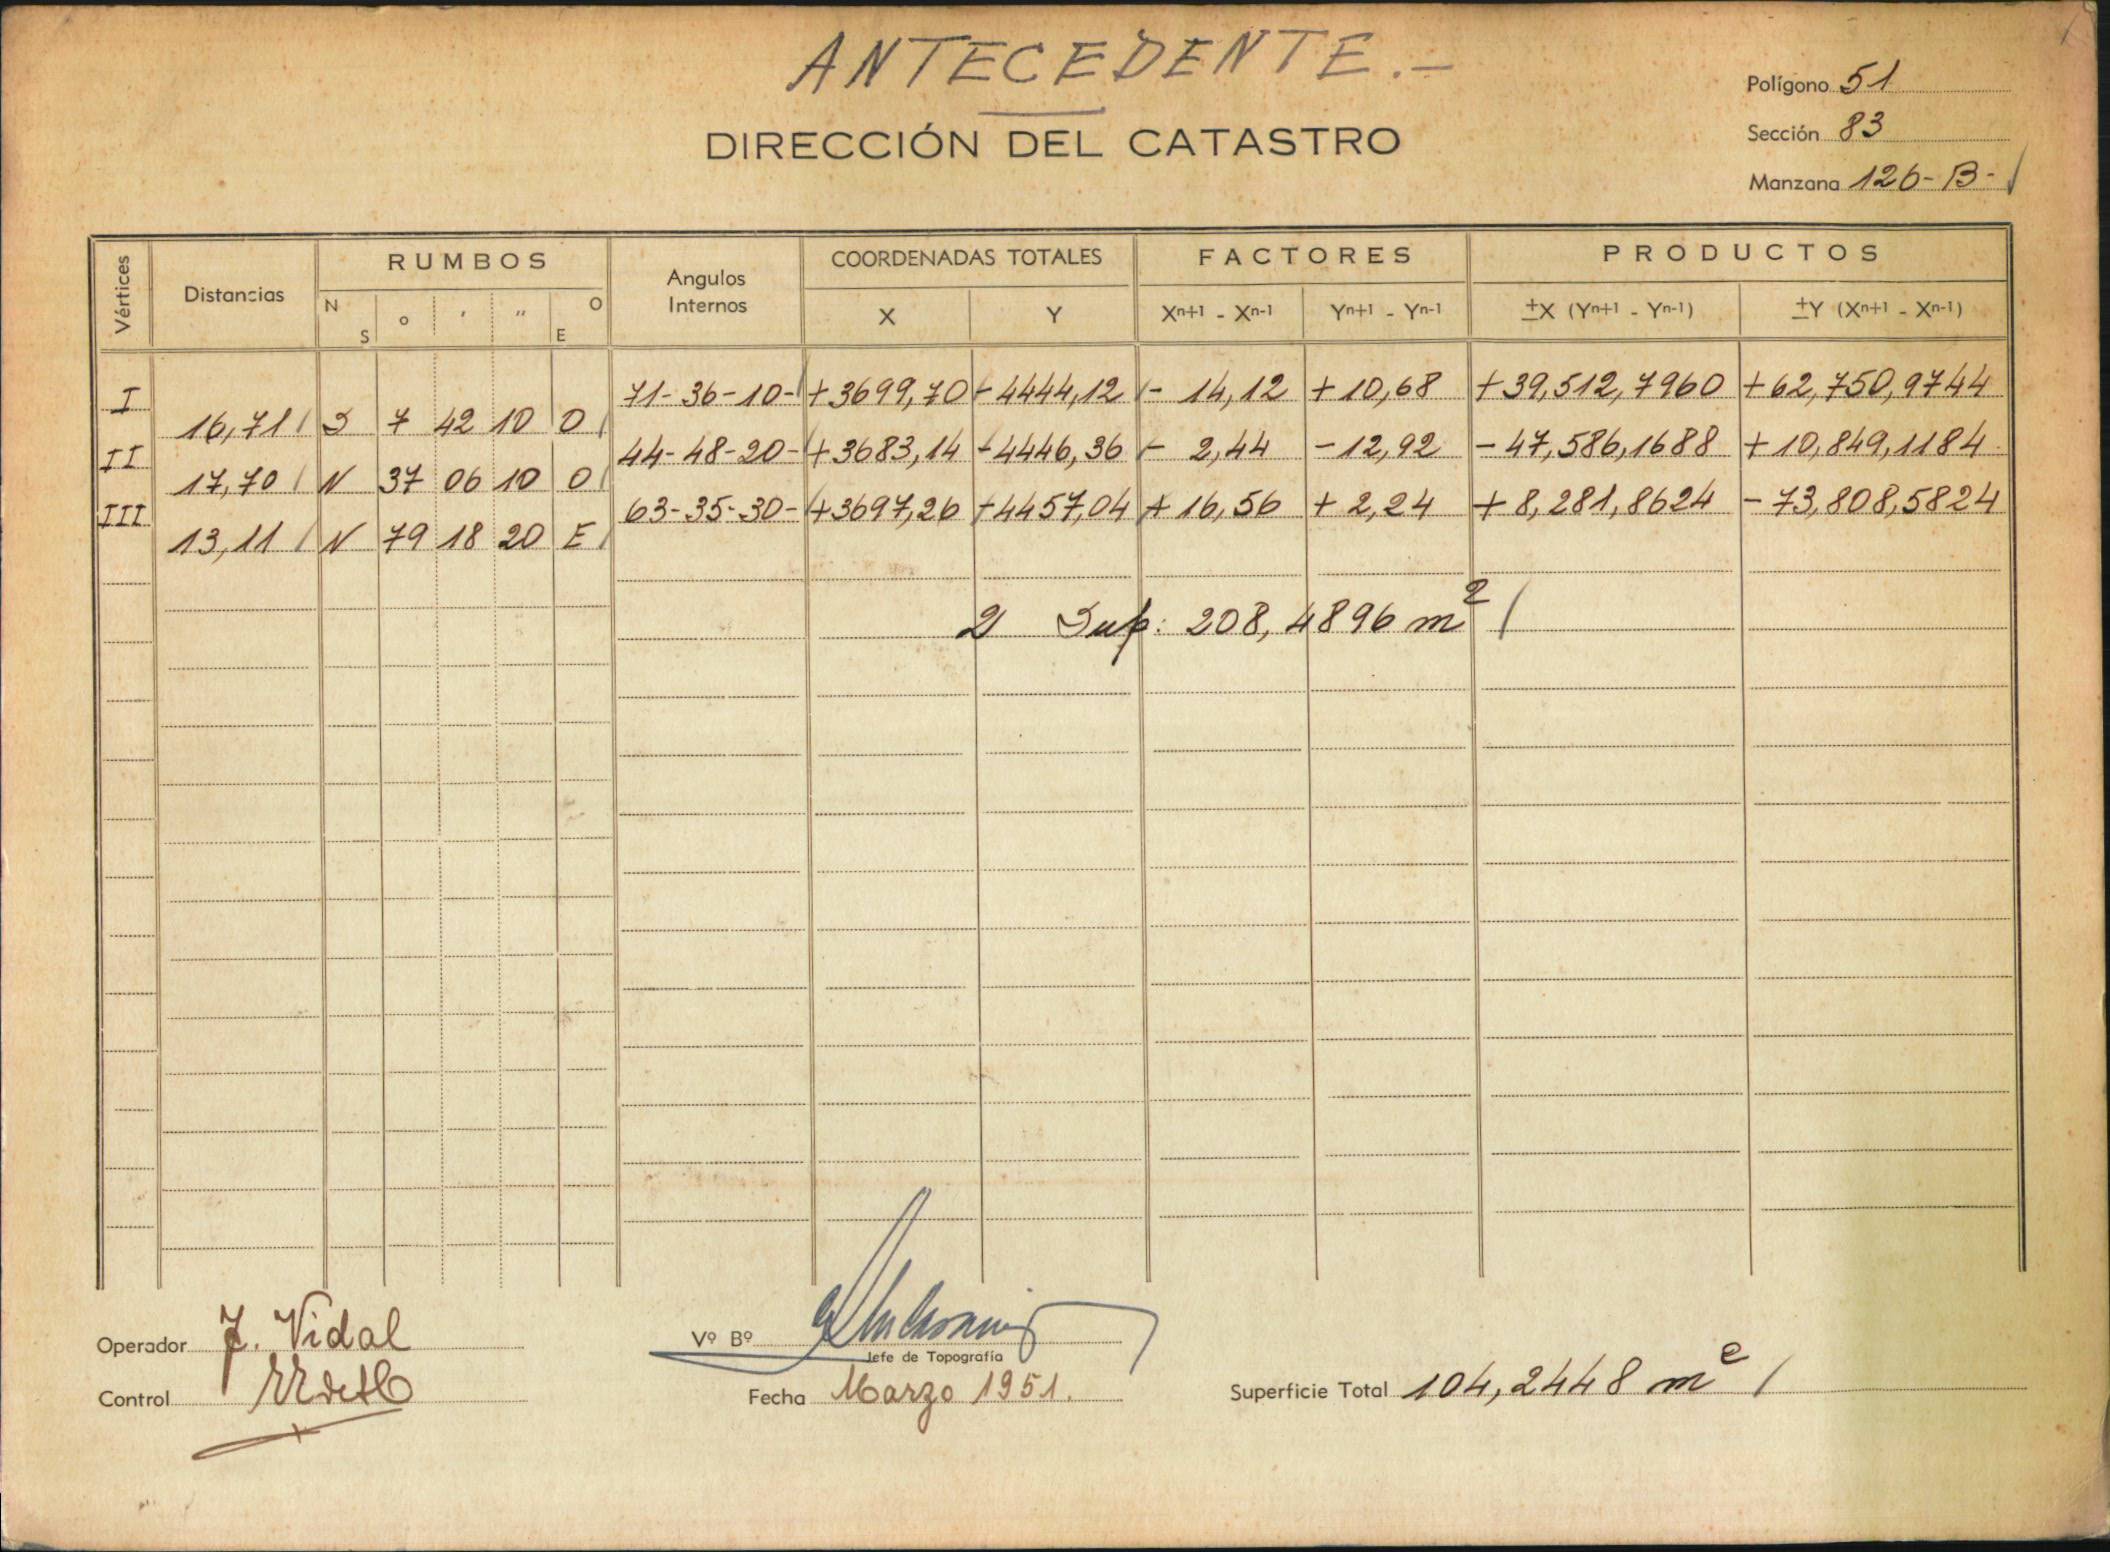 ANTECEDENTE.-
DIRECCIÓN DEL CATASTRO
Polígono 51
Sección 83
Manzana 126-B-
Vértices Distancias RUMBOS Angulos Internos COORDENADAS TOTALES FACTORES PRODUCTOS
N S o ' " O E X Y Xn+1 - Xn-1 Yn+1 - Yn-1 ±X (Yn+1 - Yn-1) ±Y (Xn+1 - Xn-1)
I 71-36-10- +3699,70 -4444,12 - 14,12 + 10,68 + 39,512,7960 + 62,750,9744
16,71 S 7 42 10 O
II 44-48-20- +3683,14 -4446,36 - 2,44 - 12,92 - 47,586,1688 + 10,849,1184
17,70 N 37 06 10 O
III 63-35-30- +3697,26 -4457,04 + 16,56 + 2,24 + 8,281,8624 - 73,808,5824
13,11 N 79 18 20 E
2 Sup: 208,4896 m²
Operador J. Vidal
Vº Bº
Jefe de Topografía
Control
Fecha Marzo 1951.
Superficie Total 104,2448 m²